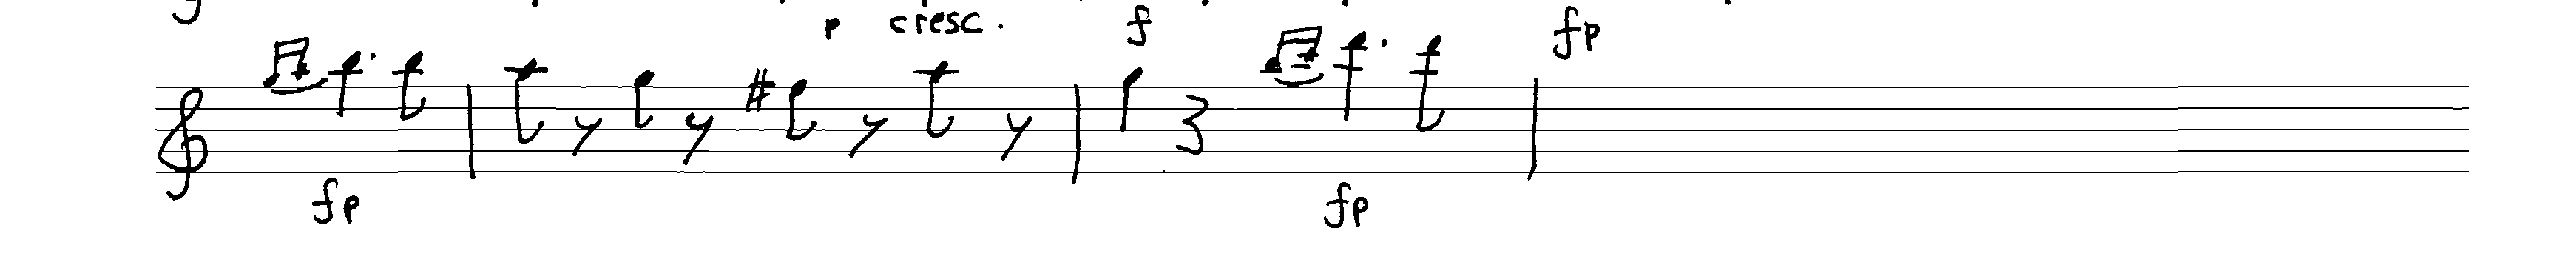 p cresc. f fp
fp fp